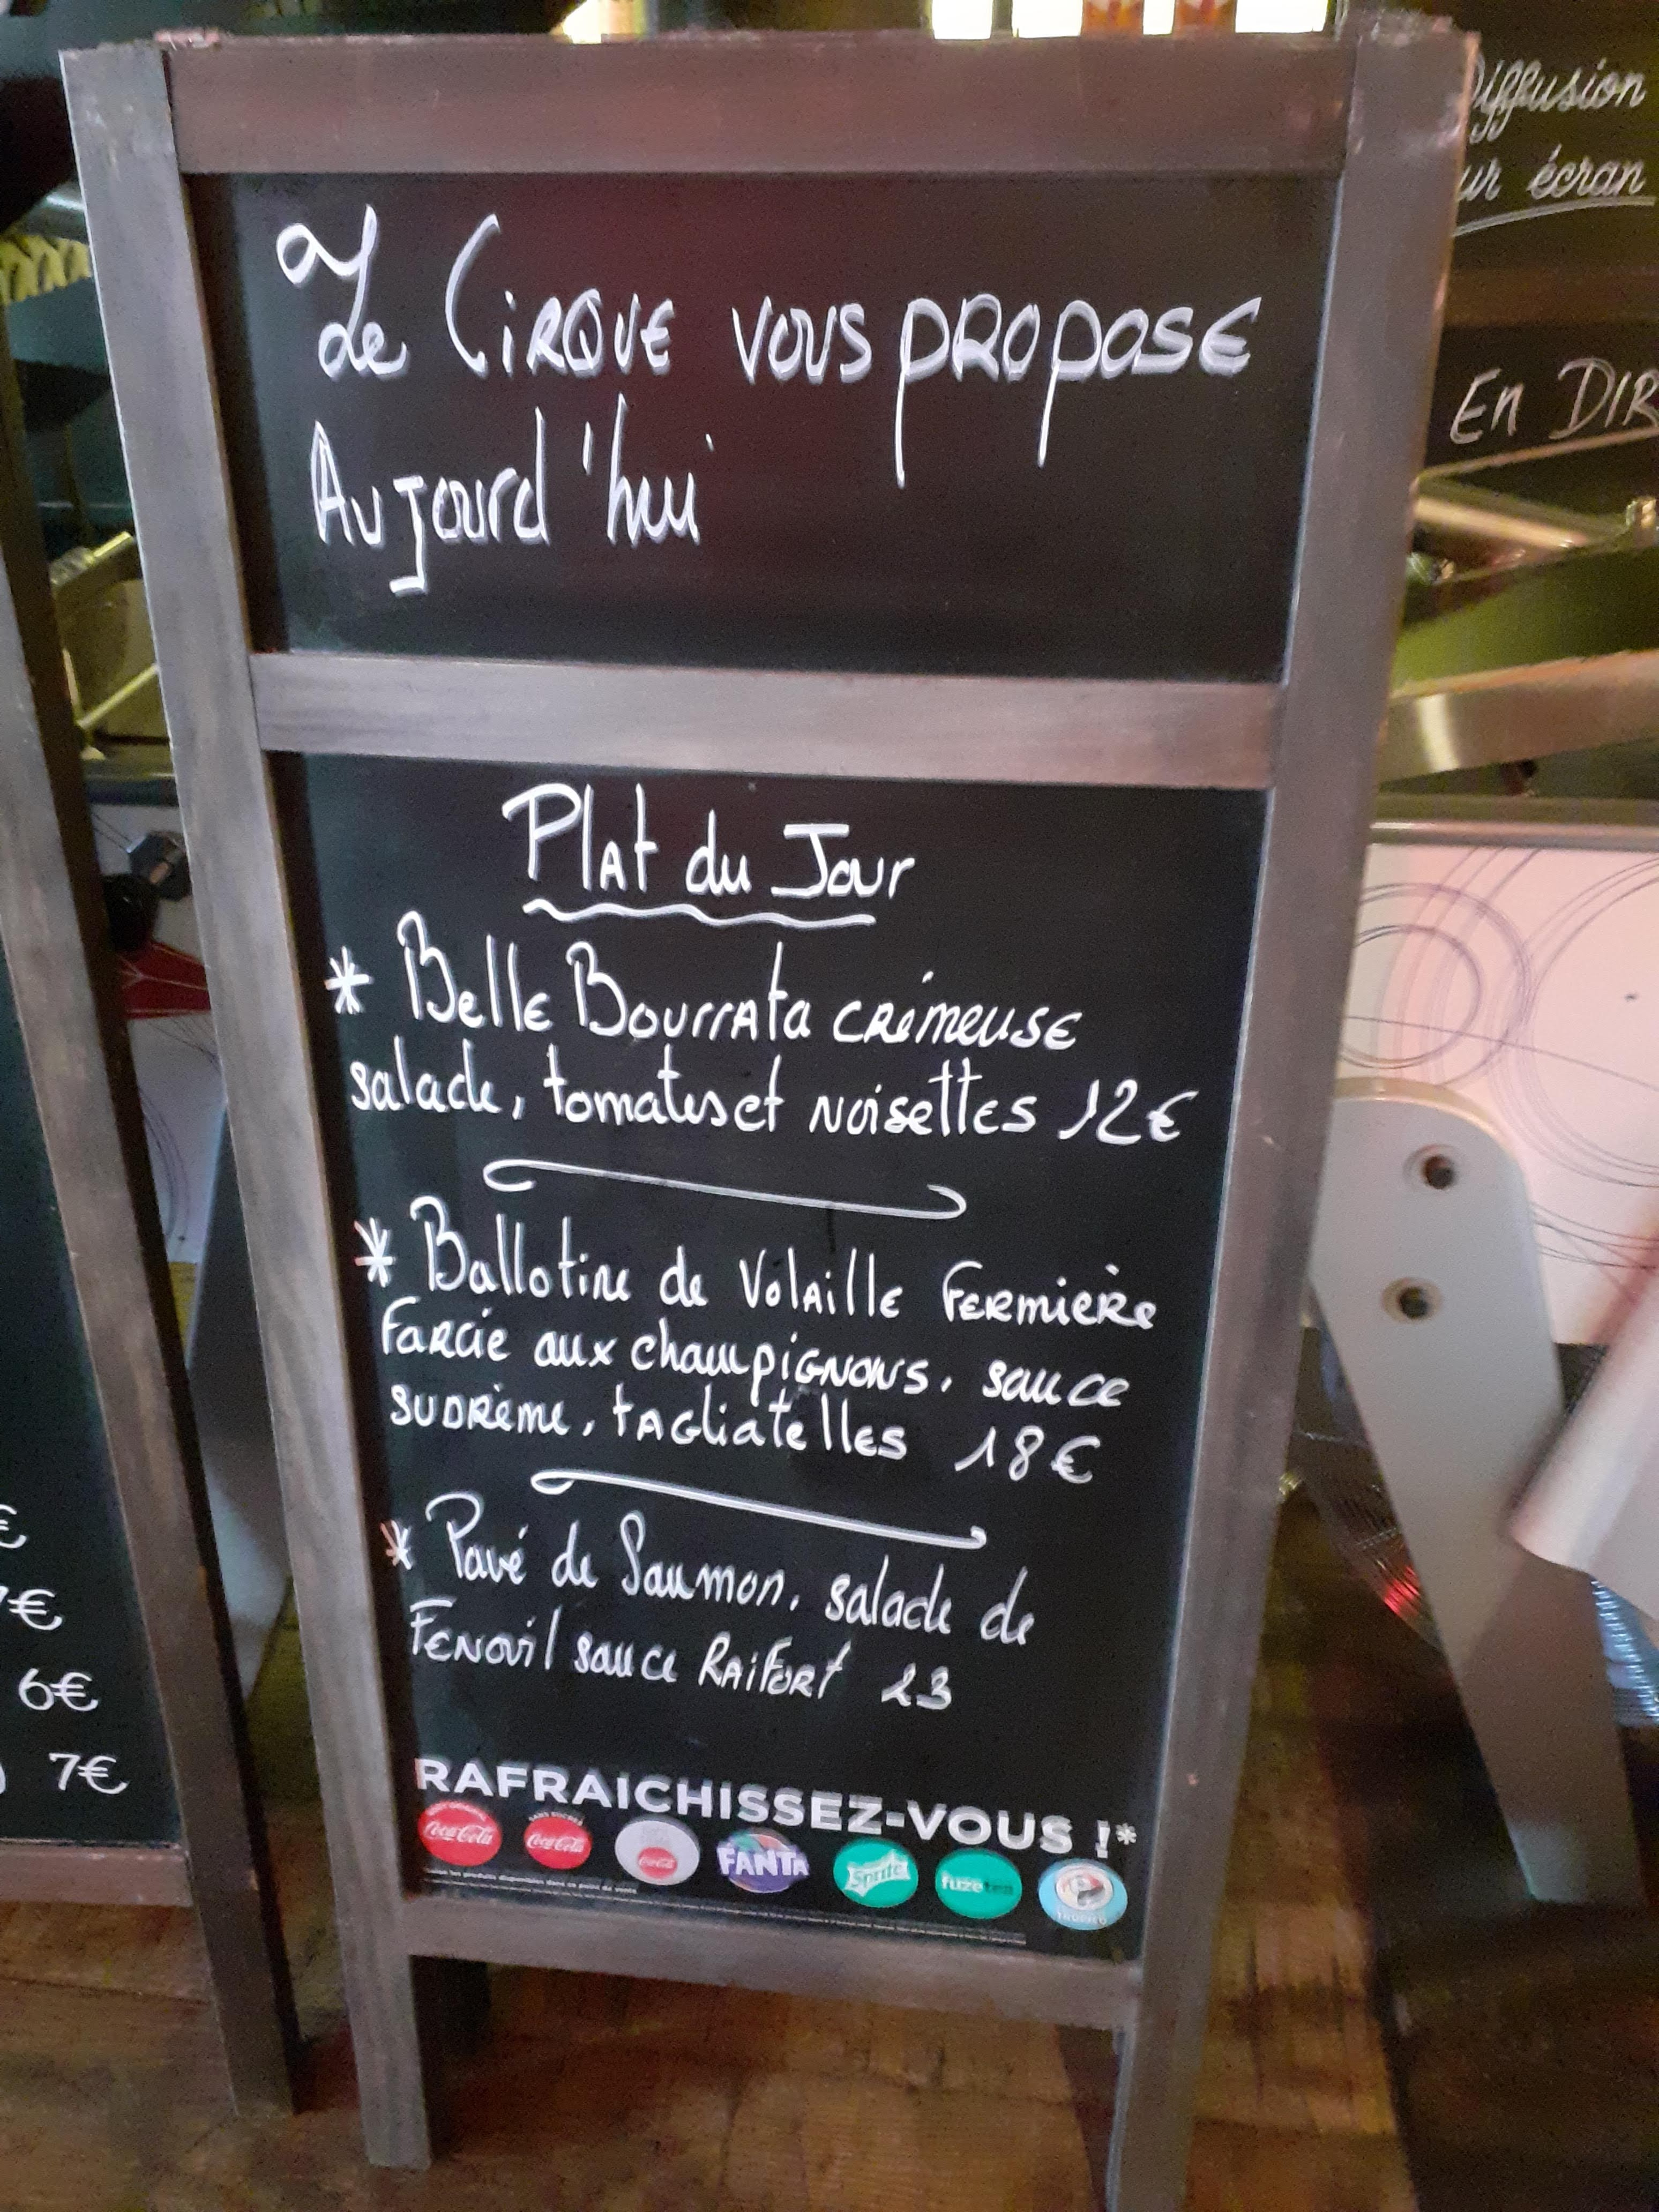 Le CiRQUE vous propose
Aujourd'hui
Plat du Jour
* Belle Bourrata crémeuse
salade, tomates et noisettes 12€
* Ballotine de Volaille Fermière
Farcie aux champignons, sauce
suprème, tagliatelles 18€
* Pavé de Saumon, salade de
Fenouil sauce Raifort 23
RAFRAICHISSEZ-VOUS !*
Coca-Cola
SANS SUCRES
Coca-Cola
Coca-Cola
FANTA
Sprite
fuzetea
TROPICO
Diffusion
sur écran
En DIR
€
7€
6€
7€